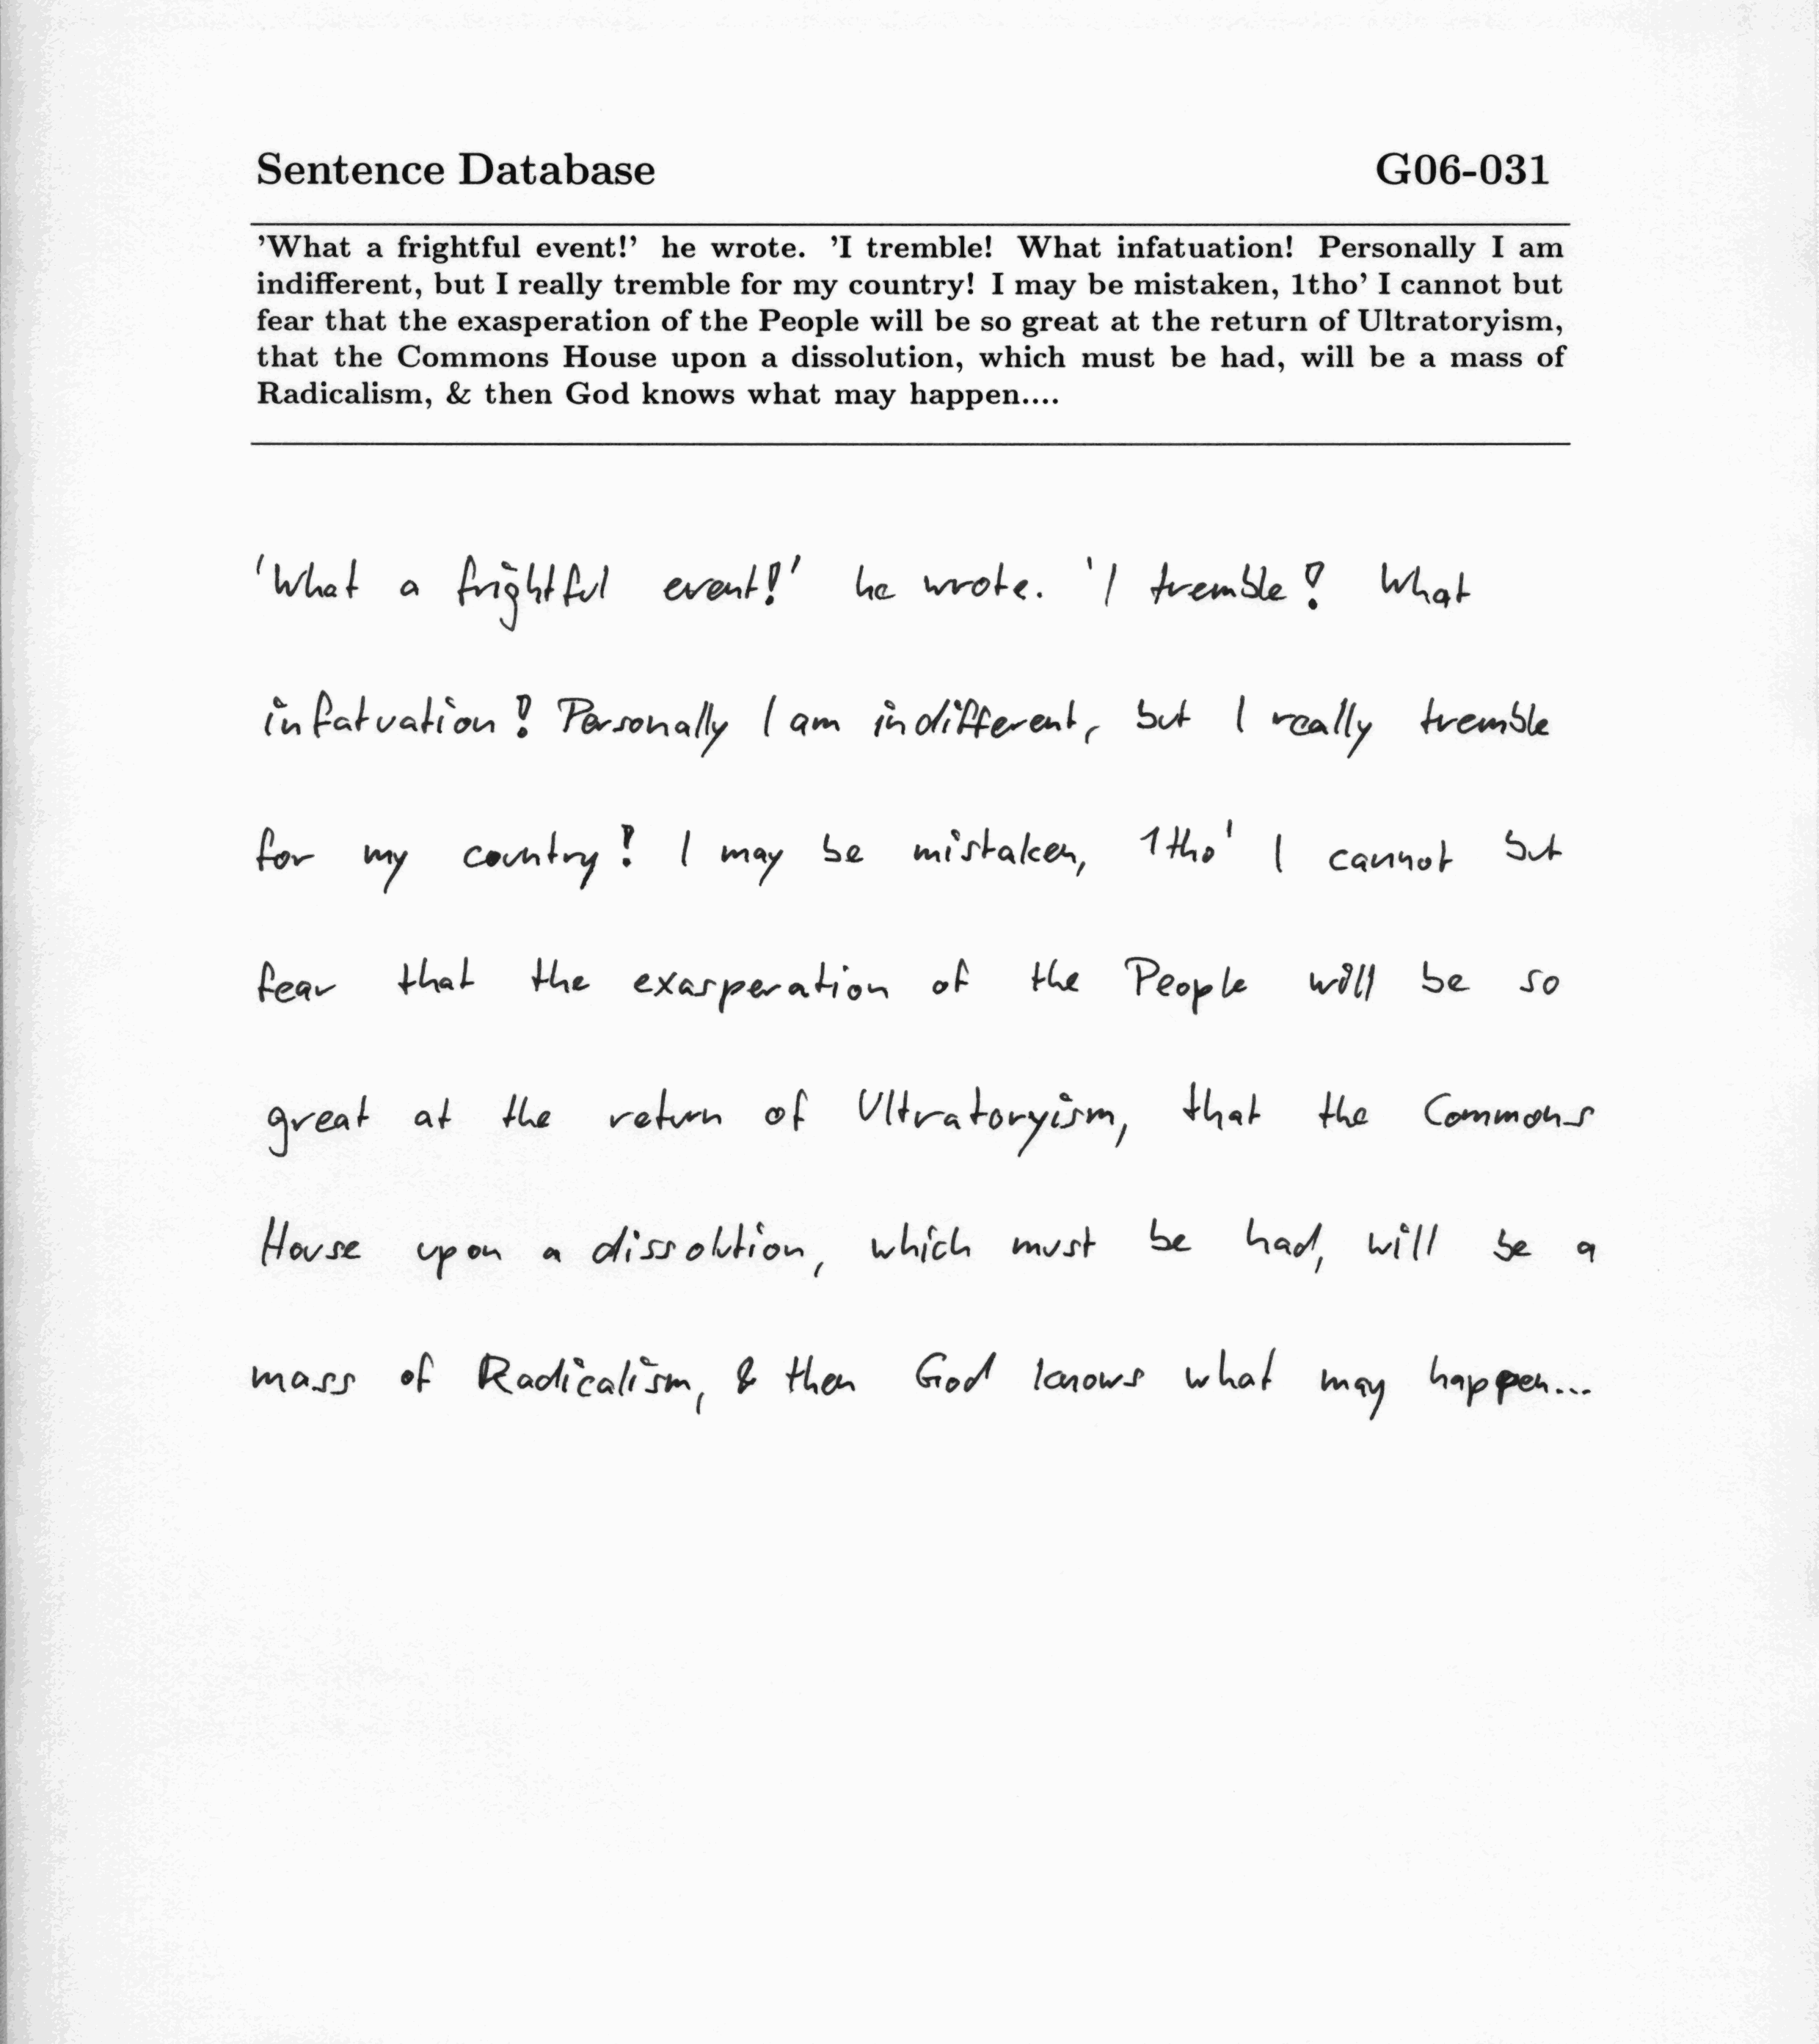 Sentence Database G06-031
’What a frightful event!’ he wrote. ’I tremble! What infatuation! Personally I am
indifferent, but I really tremble for my country! I may be mistaken, 1tho’ I cannot but
fear that the exasperation of the People will be so great at the return of Ultratoryism,
that the Commons House upon a dissolution, which must be had, will be a mass of
Radicalism, & then God knows what may happen....
'What a frightful event!' he wrote. 'I tremble! What
infatuation! Personally I am indifferent, but I really tremble
for my country! I may be mistaken, 1tho' I cannot but
fear that the exasperation of the People will be so
great at the return of Ultratoryism, that the Commons
House upon a dissolution, which must be had, will be a
mass of Radicalism, & then God knows what may happen...